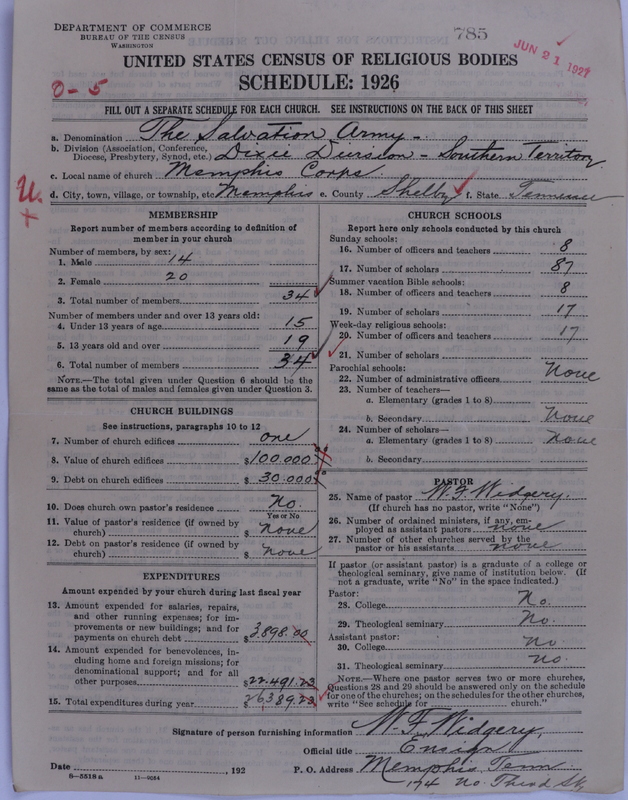 DEPARTMENT OF COMMERCE
BUREAU OF THE CENSUS
WASHINGTON
785
JUN 21 1927
UNITED STATES CENSUS OF RELIGIOUS BODIES
SCHEDULE: 1926
0-5
FILL OUT A SEPARATE SCHEDULE FOR EACH CHURCH. SEE INSTRUCTIONS ON THE BACK OF THIS SHEET
a. Denomination The Salvation Army
b. Division (Association, Conference, Diocese, Presbytery, Synod, etc.) Dixie Division - Southern Territory
c. Local name of church Memphis Corps.
d. City, town, village, or township, etc. Memphis e. County Shelby f. State Tennessee
U.
MEMBERSHIP
Report number of members according to definition of
member in your church
Number of members, by sex:
1. Male 14
2. Female 20
3. Total number of members 34
Number of members under and over 13 years old:
4. Under 13 years of age 15
5. 13 years old and over 19
6. Total number of members 34
NOTE.—The total given under Question 6 should be
same as the total of males and females given under Question 3.
CHURCH BUILDINGS
See instructions, paragraphs 10 to 12
7. Number of church edifices one
8. Value of church edifices $100.000
9. Debt on church edifices $30.000
10. Does church own pastor's residence No
Yes or No
11. Value of pastor's residence (if owned by
church) $ None
12. Debt on pastor's residence (if owned by
church) $ None
EXPENDITURES
Amount expended by your church during last fiscal year
13. Amount expended for salaries, repairs,
and other running expenses; for im-
provements or new buildings; and for
payments on church debt $3,898.00
14. Amount expended for benevolences, in-
cluding home and foreign missions; for
denominational support; and for all
other purposes $22.491.23
15. Total expenditures during year $26389.23
CHURCH SCHOOLS
Report here only schools conducted by this church
Sunday schools:
16. Number of officers and teachers 8
17. Number of scholars 87
Summer vacation Bible schools:
18. Number of officers and teachers 8
19. Number of scholars 17
Week-day religious schools:
20. Number of officers and teachers 17
21. Number of scholars
Parochial schools:
22. Number of administrative officers None
23. Number of teachers—
a. Elementary (grades 1 to 8)
b. Secondary None
24. Number of scholars—
a. Elementary (grades 1 to 8) None
b. Secondary
PASTOR
25. Name of pastor W. F. Widgery.
(If church has no pastor, write "None")
26. Number of ordained ministers, if any, em-
ployed as assistant pastors none
27. Number of other churches served by the
pastor or his assistants none
If pastor (or assistant pastor) is a graduate of a college or
theological seminary, give name of institution below. (If
not a graduate, write "No" in the space indicated.)
Pastor:
28. College No.
29. Theological seminary No.
Assistant pastor:
30. College No
31. Theological seminary No.
NOTE.—Where one pastor serves two or more churches,
Questions 28 and 29 should be answered only on the schedule
for one of the churches; on the schedules for the other churches,
write "See schedule for church."
Signature of person furnishing information W. F. Widgery,
Official title Ensign
Date , 192 P. O. Address Memphis, Tenn.
8-5518a 11-9084
174 No. Third St,